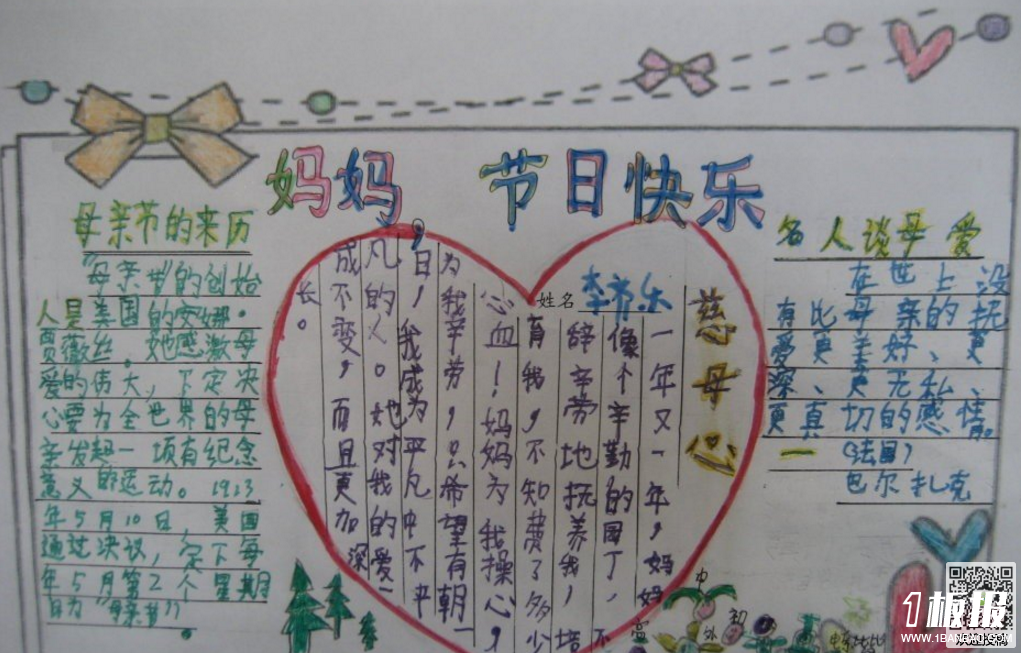 妈妈，节日快乐
母亲节的来历
“母亲节”的创始
人是美国的安娜·
贾薇丝。她感激母
爱的伟大，下定决
心要为全世界的母
亲发起一项有纪念
意义的运动。1913
年5月10日，美国
通过决议，定下每
年5月第2个星期
日为“母亲节”。
姓名 李
慈母心
一年又一年，妈妈
像个辛勤的园丁，不
辞辛劳地抚养我，培
育我，不知费了多少
心血！妈妈为我操心，
为我辛劳，只希望有朝一
日，我成为平凡中不平
凡的人。她对我的爱一
成不变，而且更加深
长。
名人谈母爱
在世上没
有比母亲的抚
爱更美好、更
深、更无私、
更真切的感情。
—（法国）
包尔扎克
1板报
WWW.1BANBAO.COM